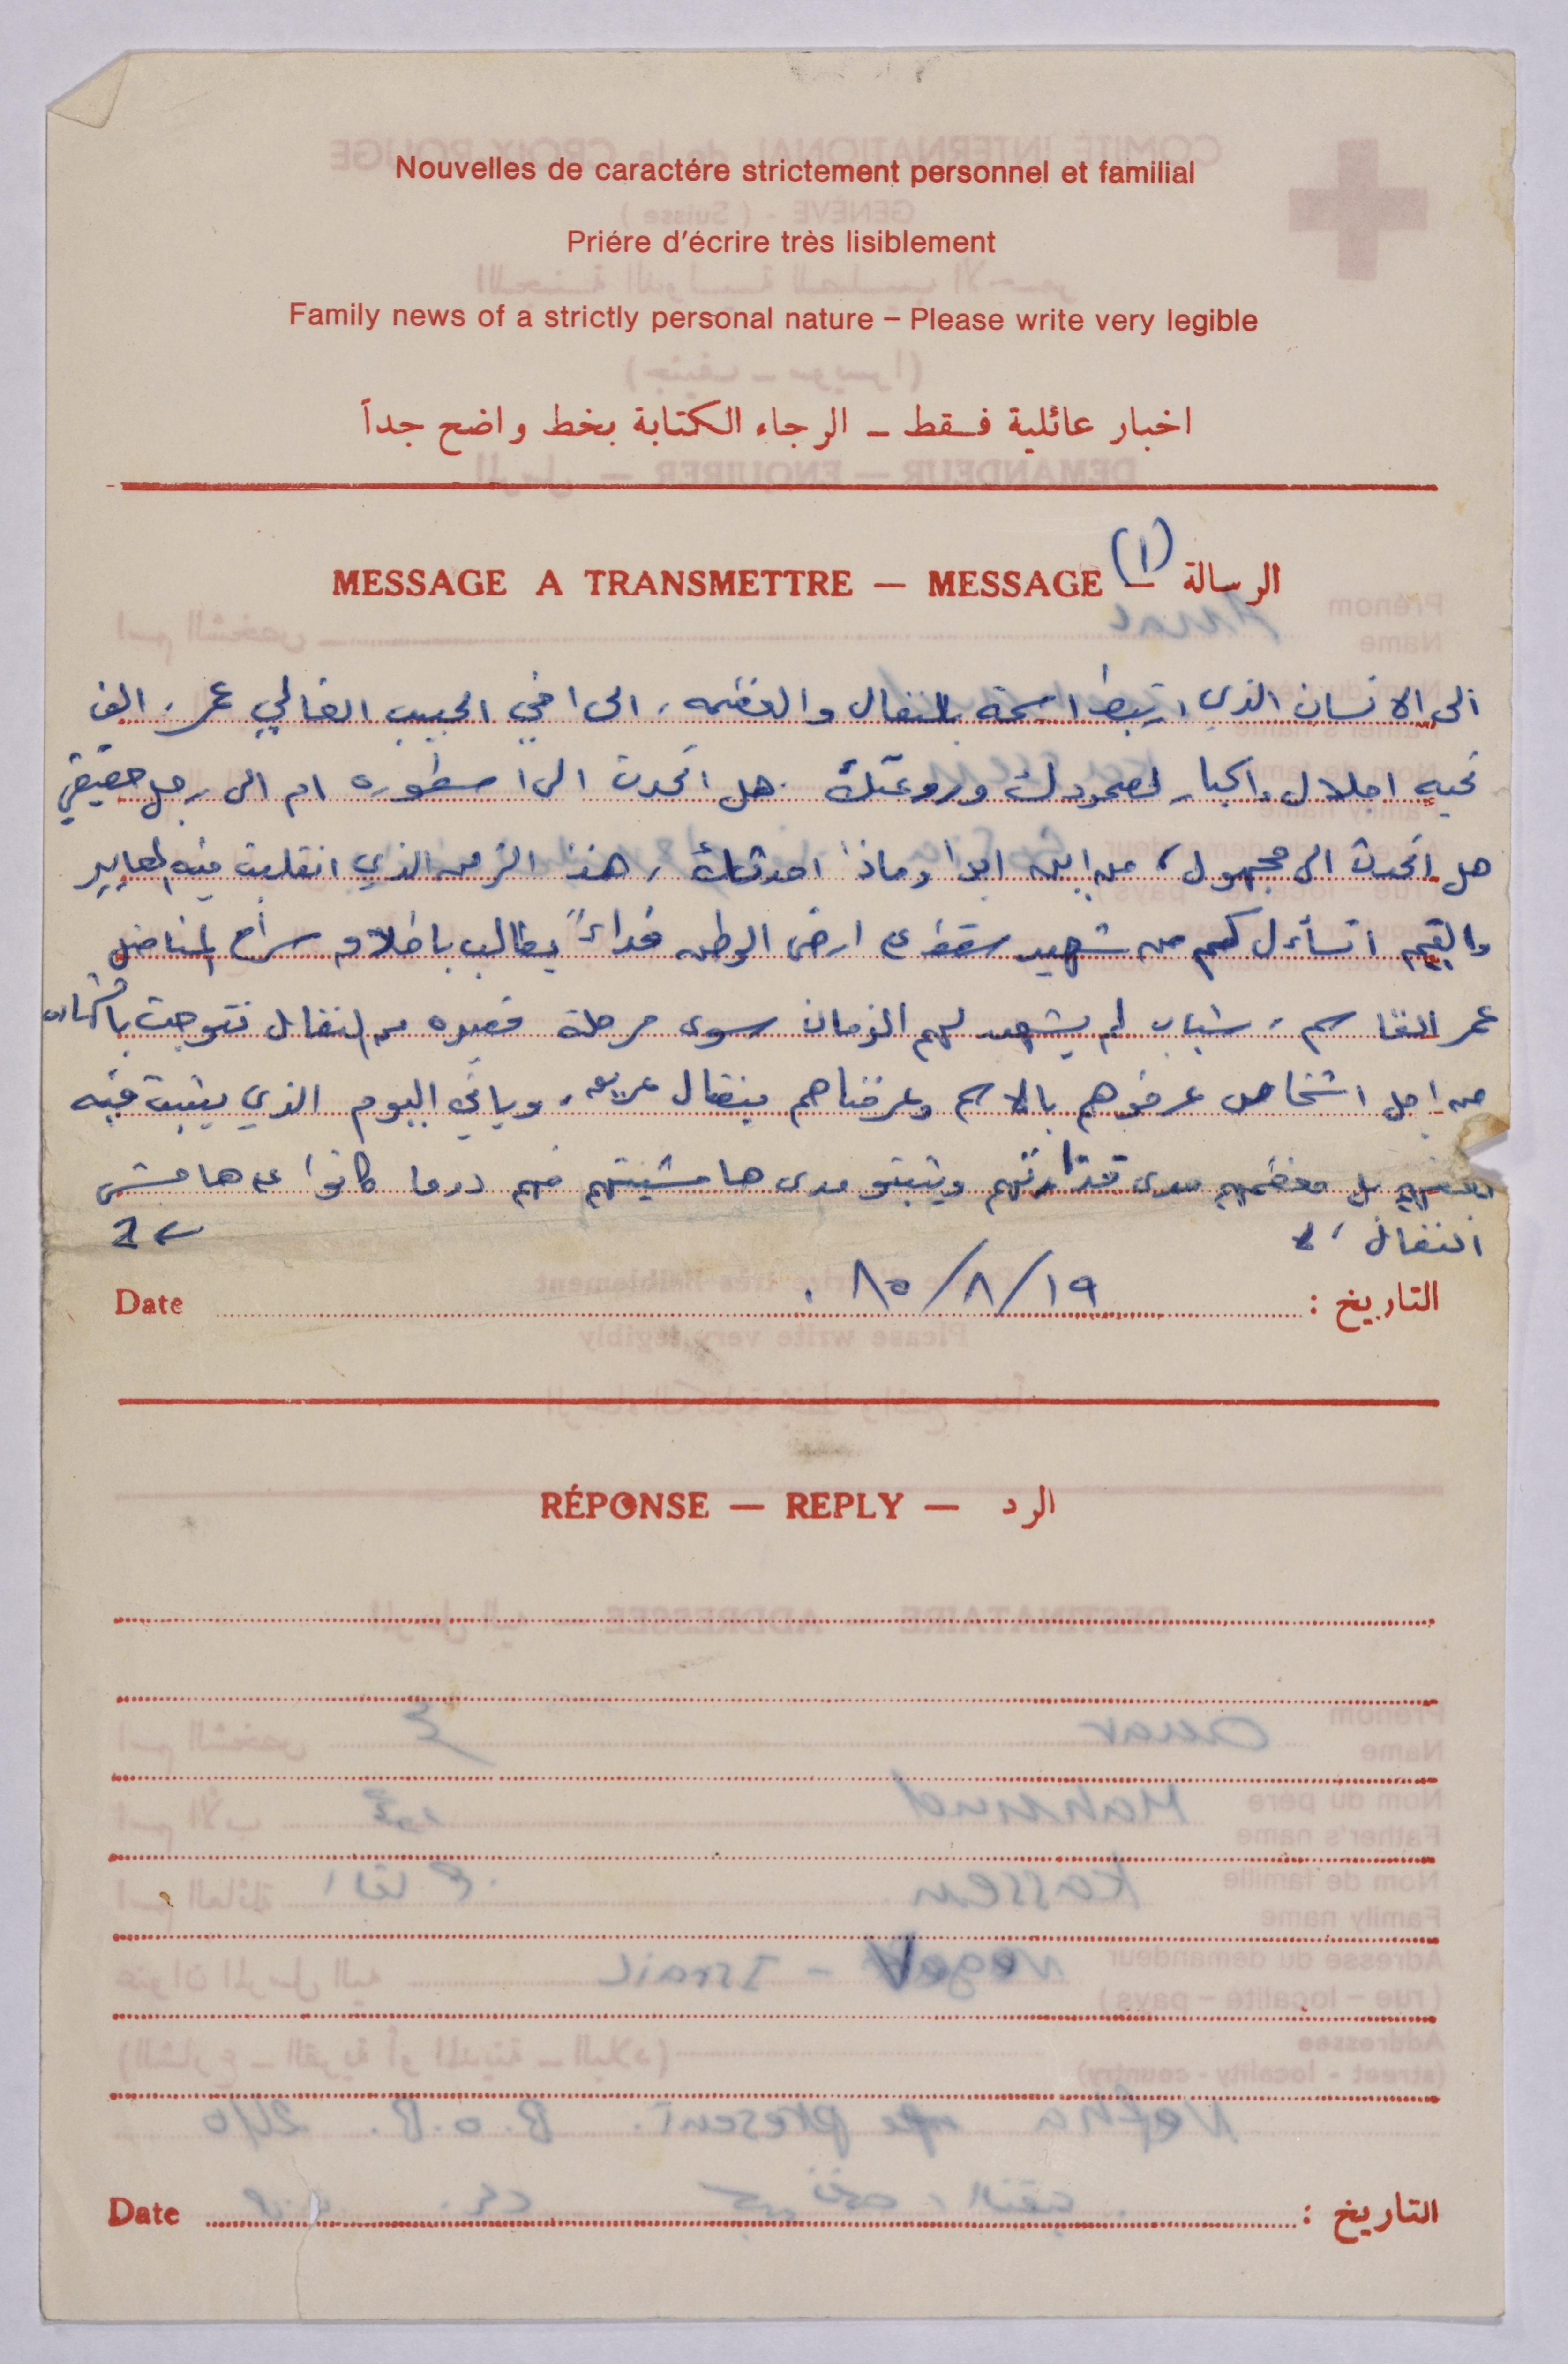 Nouvelles de caractére strictement personnel et familial
Priére d'écrire très lisiblement
Family news of a strictly personal nature – Please write very legible
اخبار عائلية فقط – الرجاء الكتابة بخط واضح جداً
MESSAGE A TRANSMETTRE — MESSAGE — الرسالة (١)
الى الانسان الذي ارتبط اسمة بالنضال والعظمه، الى اخي الحبيب الغالي عمر، الف
تحيه اجلال واكبار لصمودك وروعتك. هل اتحدث الى اسطوره ام الى رجل حقيقي
هل اتحدث الى مجهول، من اين ابدا وماذا احدثك، هذا الزمن الذي انقلبت فيه المعايير
والقيم اتسأل كم من شهيد سقط على ارض الوطن فداءً يطالب باطلاق سراح المناضل
عمر القاسم، شباب لم يشهد لهم الزمان سوى مرحلة قصيره من النضال تتوجت
من اجل اشخاص عرفوهم بالاسم وعرفناهم بنضال عريق، وياتي اليوم الذي يثبت فيه
بعضهم بل معظمهم مدى قذارتهم ويثبتو مدى هامشيتهم فهم دوما كانوا على هامش
النضال،
2
Date ١٩/٨/٨٥ التاريخ :
RÉPONSE — REPLY — الرد
Date التاريخ :